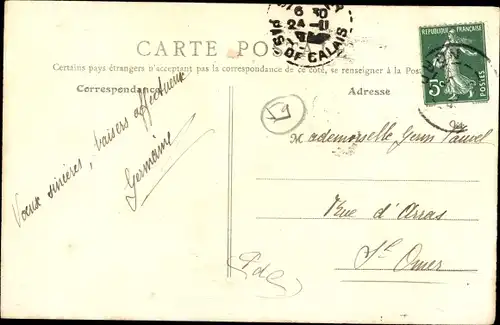 CARTE POSTALE
Certains pays étrangers n'acceptant pas la correspondance de ce côté, se renseigner à la Poste
Correspondance
Adresse
6 30
24 - 11
PAS DE CALAIS
RÉPUBLIQUE FRANÇAISE
5c
POSTES
Voeux sincères, baisers affectueux
Germaine
Mademoiselle
Rue d'Arras
St Omer
PdC